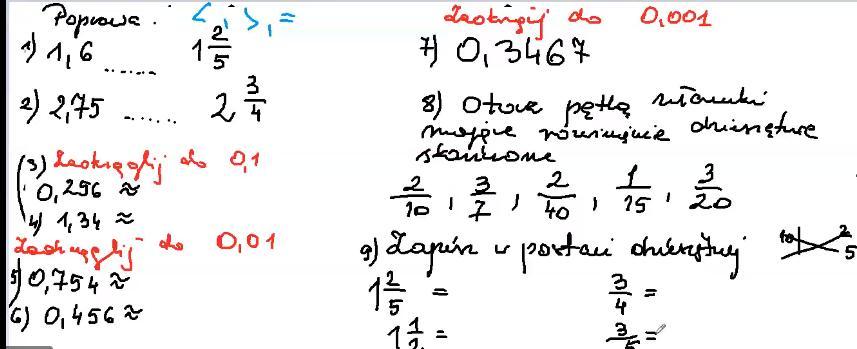 Poprawa : < , > , =
1) 1,6 ....... 1 2/5
2) 2,75 ...... 2 3/4
3) Zaokrąglij do 0,1
0,256 ≈
4) 1,34 ≈
Zaokrąglij do 0,01
5) 0,754 ≈
6) 0,456 ≈
Zaokrąglij do 0,001
7) 0,3467
8) Otocz pętlą ułamki
mające rozwinięcie dziesiętne
skończone
2/10 , 3/7 , 2/40 , 1/15 , 3/20
9) Zapisz w postaci dziesiętnej
1 2/5 = 3/4 =
1 1/2 = 3/5 =